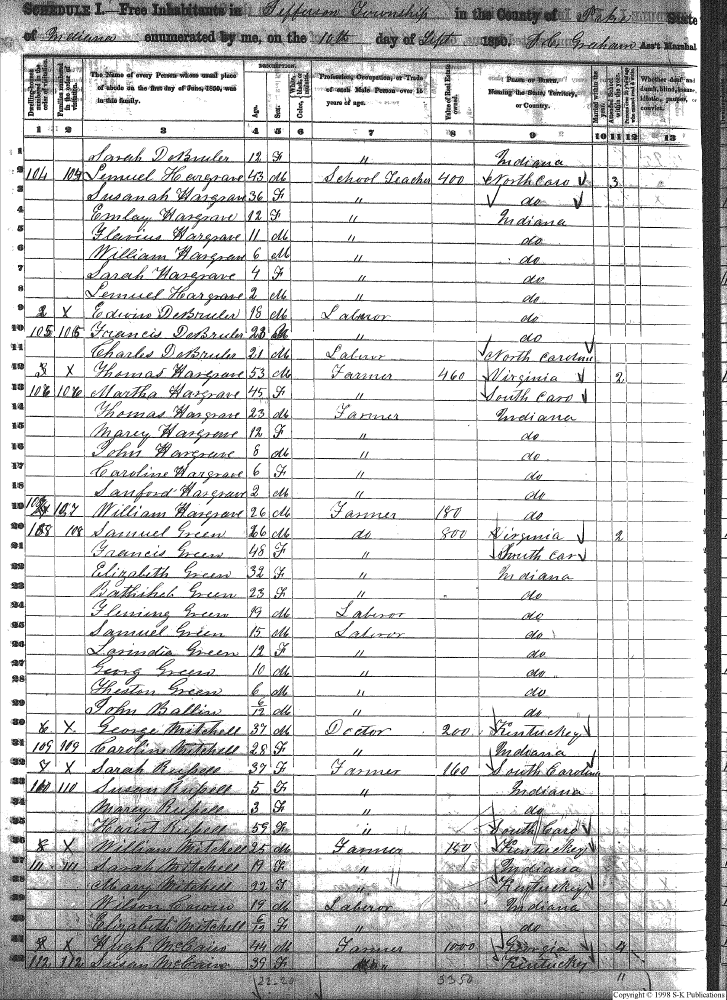 SCHEDULE I.—Free Inhabitants in Jefferson Township in the County of Pike State
of Indiana enumerated by me, on the 10th day of Sept 1850. Graham Ass't Marshal
Dwelling-houses numbered in the order of visitation.
Families numbered in the order of visitation.
The Name of every Person whose usual place of abode on the first day of June, 1850, was in this family.
DESCRIPTION.
Age.
Sex.
Color,
Profession, Occupation, or Trade of each Male Person over 15 years of age.
Value of Real Estate owned.
PLACE OF BIRTH. Naming the State, Territory, or Country.
Married within the year.
Attended School within the year.
Whether deaf and dumb, blind, insane, idiotic, pauper, or convict.
1 2 3 4 5 6 7 8 9 10 11 12 13
1 Sarah DeBruler 12 F " Indiana
2 104 104 Lemuel Hargrave 43 M School Teacher 400 North Caro 3
3 Susanah Hargrave 36 F " do
4 Emlay Hargrave 12 F " Indiana
5 Flavius Hargrave 11 M " do
6 William Hargrave 6 M " do
7 Sarah Hargrave 4 F " do
8 Lemuel Hargrave 2 M " do
9 2 X Edwin DeBruler 18 M Laberor do
10 105 105 Francis DeBruler 23 " do
11 Charles DeBruler 21 M Laberor North Carolina
12 3 X Thomas Hargrave 53 M Farmer 460 Virginia 2
13 106 106 Martha Hargrave 45 F " South Caro
14 Thomas Hargrave 23 M Farmer Indiana
15 Marey Hargrave 12 F " do
16 John Hargrave 8 M " do
17 Caroline Hargrave 6 F " do
18 Sanford Hargrave 2 M " do
19 107 William Hargrave 26 M Farmer 180 do
20 108 108 Samuel Green 26 M do 800 Virginia 2
21 Francis Green 48 F " South Car
22 Elizabeth Green 32 F " Indiana
23 Bathsheb Green 23 F " do
24 Fleming Green 19 M Laberor do
25 Samuel Green 15 M Laberor do
26 Larindia Green 12 F " do
27 Georg Green 10 M " do
28 Theston Green 6 M " do
29 John Ballin 6/12 M " do
30 6 X George Mitchell 37 M Doctor 200 Kentuckey
31 109 109 Caroline Mitchell 28 F " Indiana
32 7 X Sarah Russell 37 F Farmer 160 South Carolina
33 110 110 Susan Russell 5 F " Indiana
34 Marey Russell 3 F " do
35 Russell 59 F " South Caro
36 8 X William Mitchell 25 M Farmer 150 Kentuckey
37 111 111 Sarah Mitchell 19 F " Indiana
38 Mary Mitchell 22 F " Kentuckey
39 Wilson 19 M Laberor Indiana
40 Elizabeth Mitchell 6/12 F " do
41 9 X Hugh McCain 44 M Farmer 1000 Georgia 4
42 112 112 Susan McCain 39 F " Kentuckey
22.20 3350 "
Copyright © 1998 S-K Publications